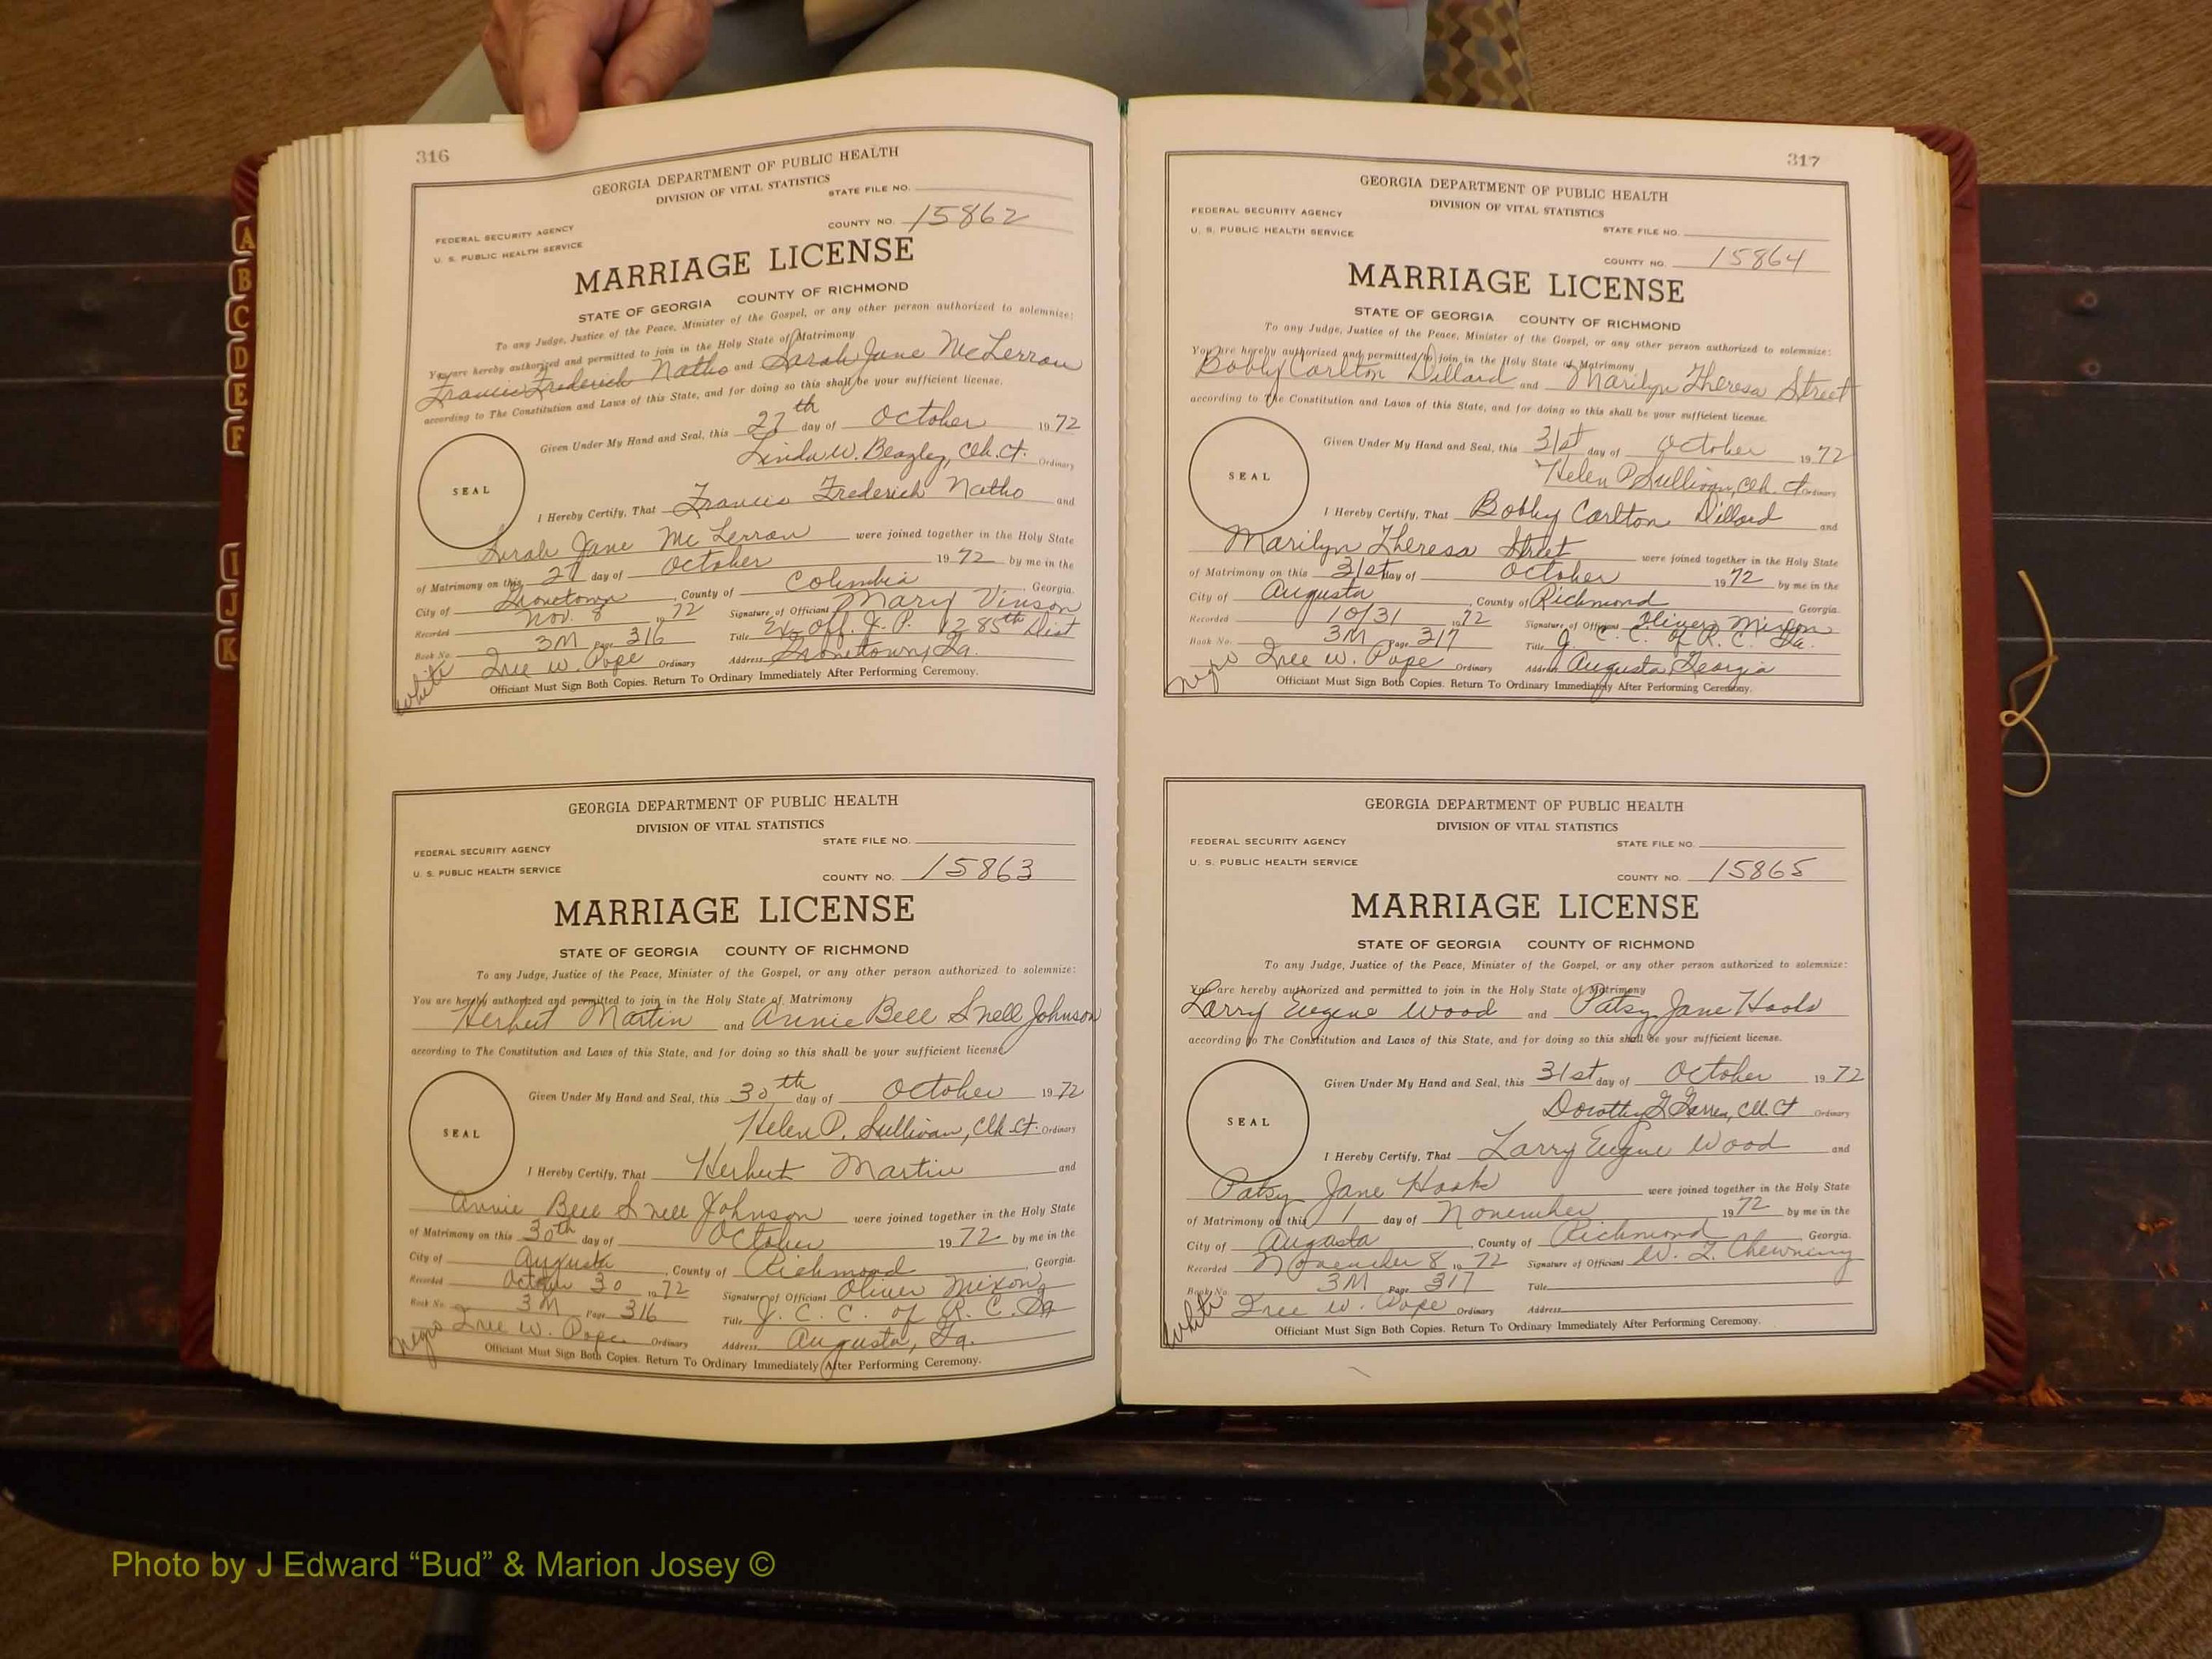 316
GEORGIA DEPARTMENT OF PUBLIC HEALTH
DIVISION OF VITAL STATISTICS
STATE FILE NO.
COUNTY NO. 15862
FEDERAL SECURITY AGENCY
U. S. PUBLIC HEALTH SERVICE
MARRIAGE LICENSE
STATE OF GEORGIA COUNTY OF RICHMOND
To any Judge, Justice of the Peace, Minister of the Gospel, or any other person authorized to solemnize:
You are hereby authorized and permitted to join in the Holy State of Matrimony
Francis Frederich Natho and Sarah Jane McLerran
according to The Constitution and Laws of this State, and for doing so this shall be your sufficient license.
Given Under My Hand and Seal, this 27th day of October 1972
Linda W. Beazley, Clk. Ct. Ordinary
SEAL
I Hereby Certify, That Francis Frederich Natho and
Sarah Jane McLerran were joined together in the Holy State
of Matrimony on this 27 day of October 1972 by me in the
City of Grovetown, County of Columbia, Georgia.
Recorded Nov. 8 1972 Signature of Officiant Mary Vinson
Book No. 3M Page 316 Title Ex. Off. J. P. 1285th Dist
Tree W. Pope Ordinary Address Grovetown, Ga.
White
Officiant Must Sign Both Copies. Return To Ordinary Immediately After Performing Ceremony.
GEORGIA DEPARTMENT OF PUBLIC HEALTH
DIVISION OF VITAL STATISTICS
STATE FILE NO.
FEDERAL SECURITY AGENCY
U. S. PUBLIC HEALTH SERVICE
COUNTY NO. 15863
MARRIAGE LICENSE
STATE OF GEORGIA COUNTY OF RICHMOND
To any Judge, Justice of the Peace, Minister of the Gospel, or any other person authorized to solemnize:
You are hereby authorized and permitted to join in the Holy State of Matrimony
Herbert Martin and Annie Bell Snell Johnson
according to The Constitution and Laws of this State, and for doing so this shall be your sufficient license
Given Under My Hand and Seal, this 30th day of October 1972
Helen P. Sullivan, Clk. Ct. Ordinary
SEAL
I Hereby Certify, That Herbert Martin and
Annie Bell Snell Johnson were joined together in the Holy State
of Matrimony on this 30th day of October 1972 by me in the
City of Augusta, County of Richmond, Georgia.
Recorded October 30 1972 Signature of Officiant Oliver Mixon
Book No. 3M Page 316 Title J. C. C. of R. C. Ga
Tree W. Pope Ordinary Address Augusta, Ga.
Negro
Officiant Must Sign Both Copies. Return To Ordinary Immediately After Performing Ceremony.
317
GEORGIA DEPARTMENT OF PUBLIC HEALTH
DIVISION OF VITAL STATISTICS
FEDERAL SECURITY AGENCY
U. S. PUBLIC HEALTH SERVICE
STATE FILE NO.
COUNTY NO. 15864
MARRIAGE LICENSE
STATE OF GEORGIA COUNTY OF RICHMOND
To any Judge, Justice of the Peace, Minister of the Gospel, or any other person authorized to solemnize:
You are hereby authorized and permitted to join in the Holy State of Matrimony
Bobby Carlton Dillard and Marilyn Theresa Street
according to The Constitution and Laws of this State, and for doing so this shall be your sufficient license.
Given Under My Hand and Seal, this 31st day of October 1972
Helen P Sullivan, Clk. Ct Ordinary
SEAL
I Hereby Certify, That Bobby Carlton Dillard and
Marilyn Theresa Street were joined together in the Holy State
of Matrimony on this 31st day of October 1972 by me in the
City of Augusta, County of Richmond, Georgia.
Recorded 10/31 1972 Signature of Officiant Oliver Mixon
Book No. 3M Page 317 Title J. C. C. of R. C. Ga.
Tree W. Pope Ordinary Address Augusta, Georgia
Negro
Officiant Must Sign Both Copies. Return To Ordinary Immediately After Performing Ceremony.
GEORGIA DEPARTMENT OF PUBLIC HEALTH
DIVISION OF VITAL STATISTICS
FEDERAL SECURITY AGENCY
STATE FILE NO.
U. S. PUBLIC HEALTH SERVICE
COUNTY NO. 15865
MARRIAGE LICENSE
STATE OF GEORGIA COUNTY OF RICHMOND
To any Judge, Justice of the Peace, Minister of the Gospel, or any other person authorized to solemnize:
You are hereby authorized and permitted to join in the Holy State of Matrimony
Larry Eugene Wood and Patsy Jane Hooks
according to The Constitution and Laws of this State, and for doing so this shall be your sufficient license.
Given Under My Hand and Seal, this 31st day of October 1972
Dorothy Clk. Ct Ordinary
SEAL
I Hereby Certify, That Larry Eugene Wood and
Patsy Jane Hooks were joined together in the Holy State
of Matrimony on this 1 day of November 1972 by me in the
City of Augusta, County of Richmond, Georgia.
Recorded November 8 1972 Signature of Officiant W. Chewning
Book No. 3M Page 317 Title
Tree W. Pope Ordinary Address
White
Officiant Must Sign Both Copies. Return To Ordinary Immediately After Performing Ceremony.
A
B
C
D
E
F
I
J
K
Photo by J Edward “Bud” & Marion Josey ©